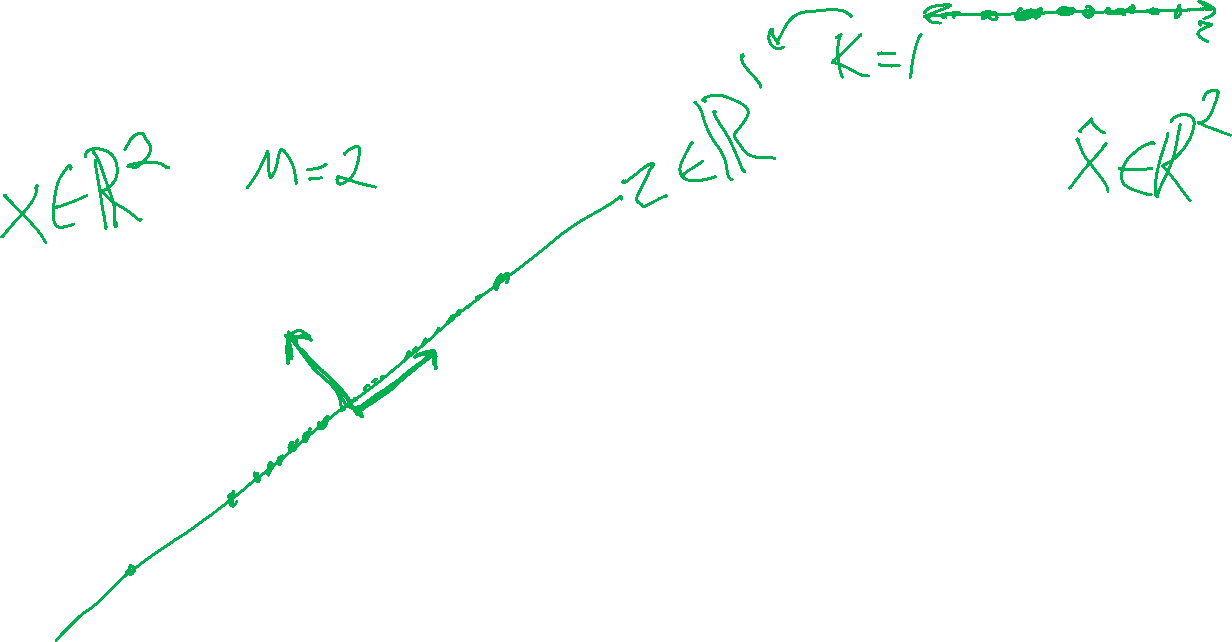 x∈ℝ² n=2 z∈ℝ¹ K=1 z
x̂∈ℝ²